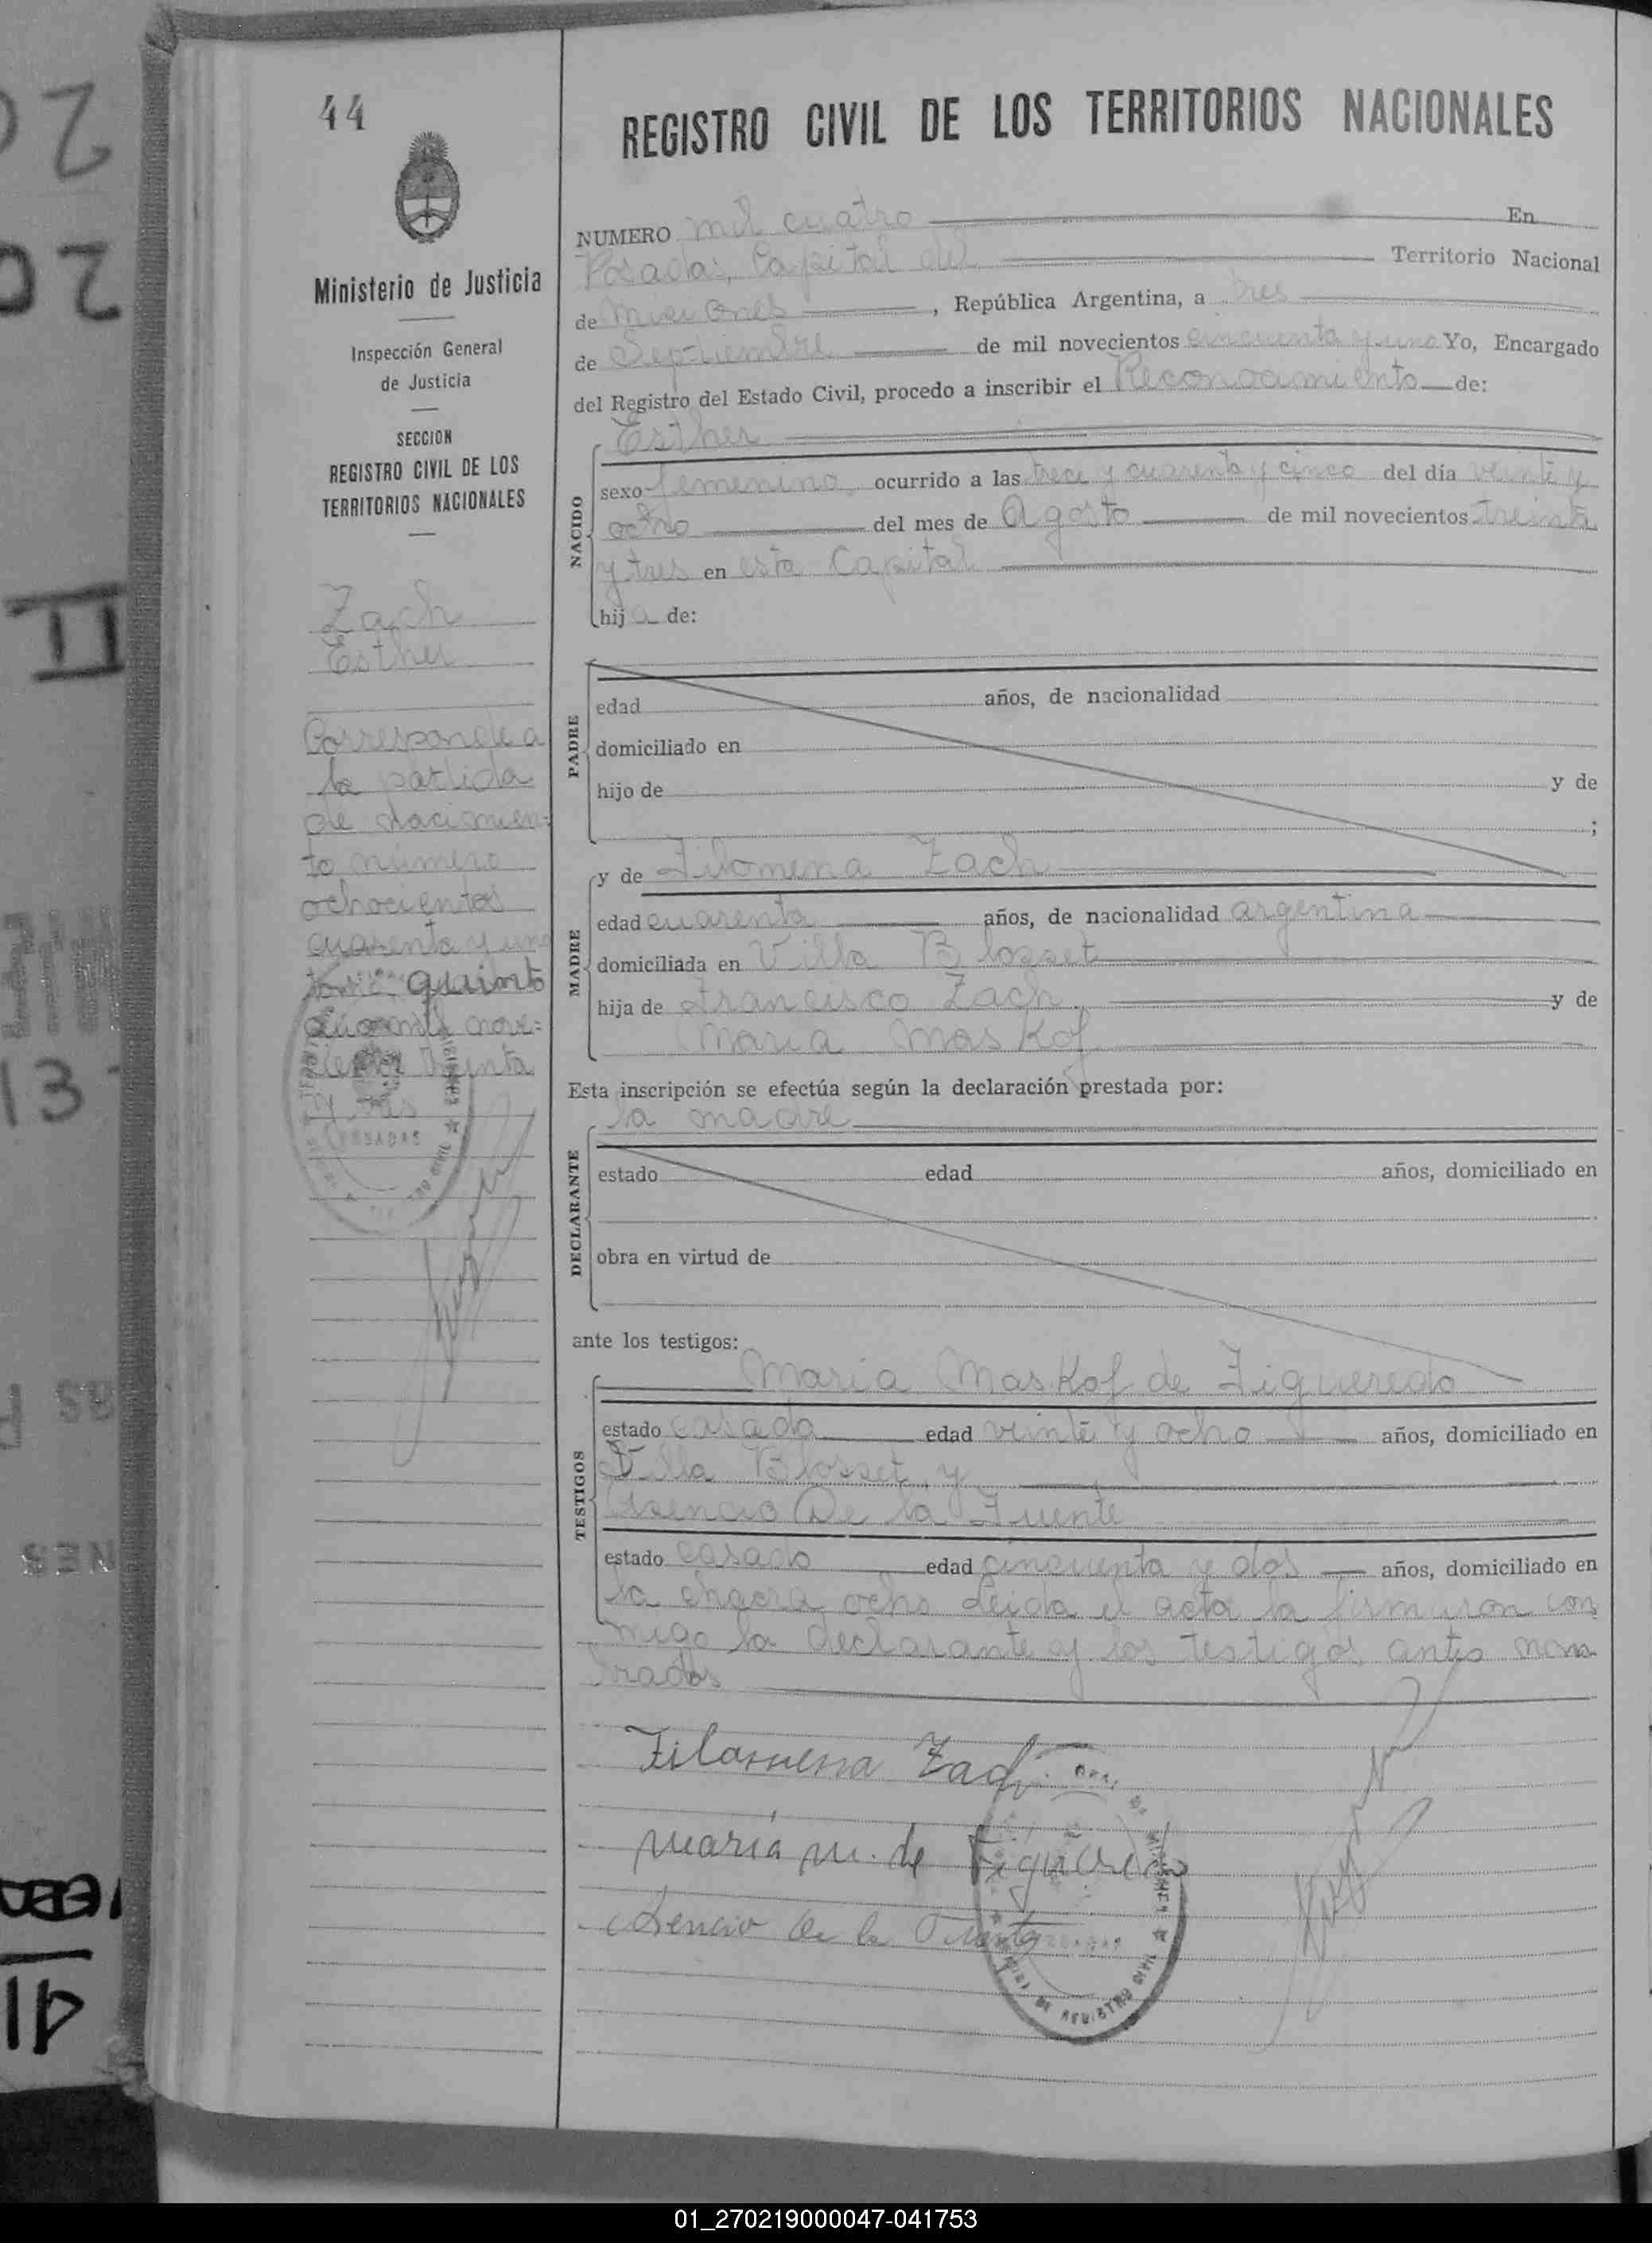 44
REGISTRO CIVIL DE LOS TERRITORIOS NACIONALES
Ministerio de Justicia
Inspección General
de Justicia
SECCION
REGISTRO CIVIL DE LOS
TERRITORIOS NACIONALES
Zach
Esther
Corresponde a
la partida
de nacimien=
to número
ochocientos
cuarenta y uno
quinto
nove=
cientos treinta
y tres
POSADAS
NUMERO mil cuatro En
Posadas, Capital del Territorio Nacional
de Misiones, República Argentina, a tres
de Septiembre de mil novecientos cincuenta y uno Yo, Encargado
del Registro del Estado Civil, procedo a inscribir el Reconocimiento de:
Esther
NACIDO
sexo femenino ocurrido a las trece y cuarenta y cinco del día veinte y
ocho del mes de Agosto de mil novecientos treinta
y tres en esta Capital
hija de:
PADRE
edad años, de nacionalidad
domiciliado en
hijo de y de
;
MADRE
y de Filomena Zach
edad cuarenta años, de nacionalidad argentina
domiciliada en Villa Blosset
hija de Francisco Zach y de
Maria Maskof
Esta inscripción se efectúa según la declaración prestada por:
la madre
DECLARANTE
estado edad años, domiciliado en
obra en virtud de
ante los testigos:
Maria Maskof de Figueredo
TESTIGOS
estado casada edad veinte y ocho años, domiciliado en
Villa Blosset y
Asencio De la Fuente
estado casado edad cincuenta y dos años, domiciliado en
la chacra ocho Leida el acta la firmaron con
migo la declarante y los testigos antes nom
brados
Filomena Zach
María M. de Figueredo
Asencio de la Fuente
MISIONES
DE REGISTRO CIVIL
01_270219000047-041753